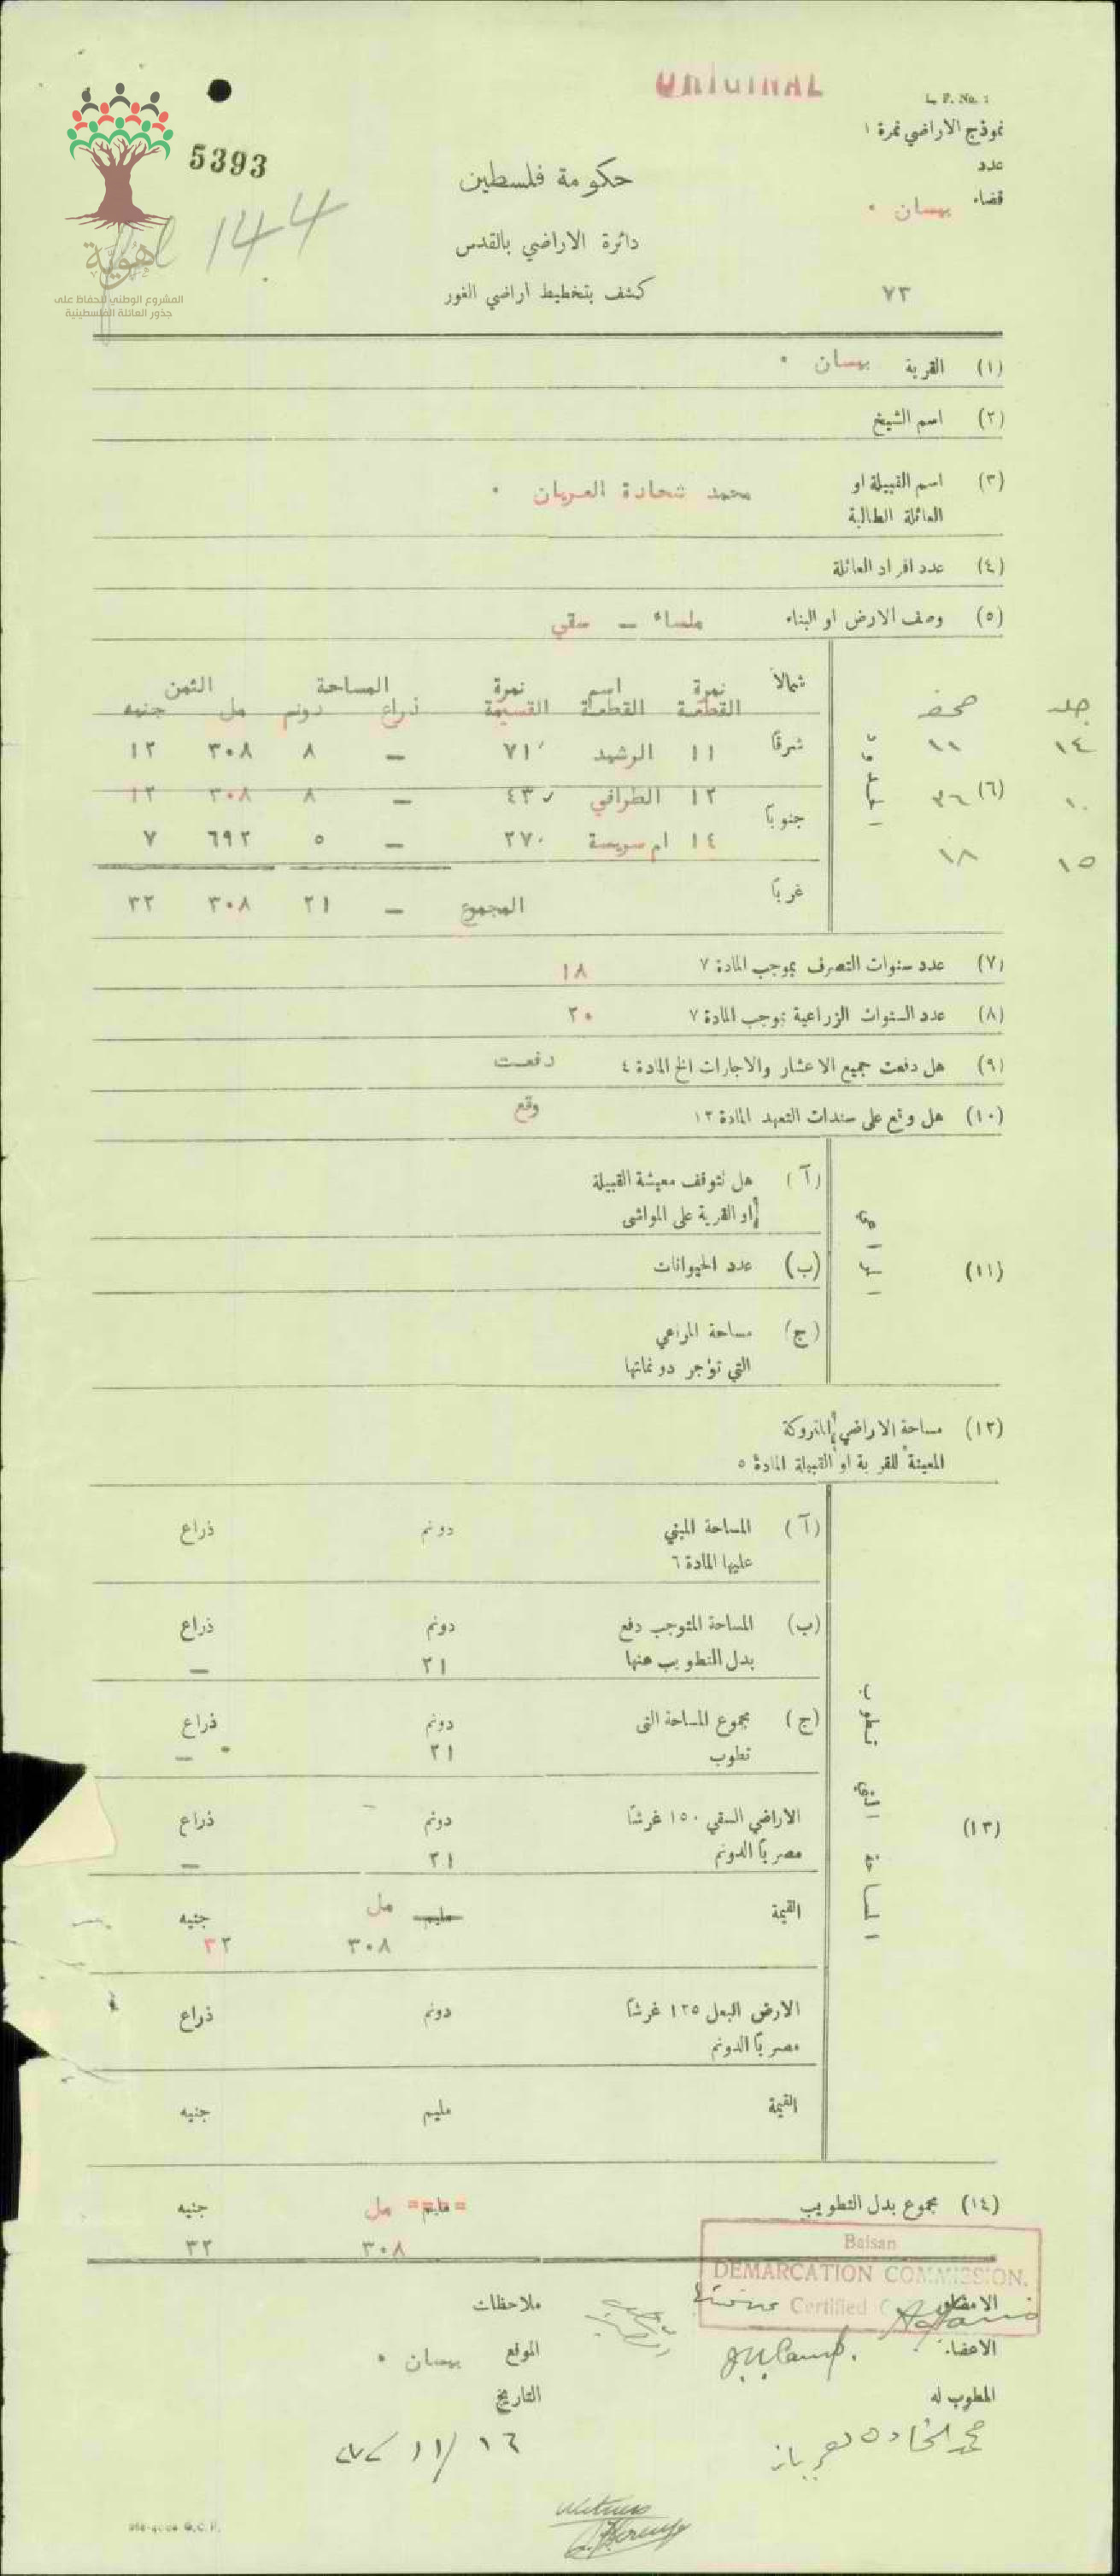 ORIGINAL
L. F. No. 1
نموذج الاراضي نمرة ١
عدد
قضاء بيسان ٠
٧٣
5393
144
هُوِيَّة
المشروع الوطني للحفاظ على
جذور العائلة الفلسطينية
حكومة فلسطين
دائرة الاراضي بالقدس
كشف بتخطيط اراضي الغور
(١) القرية بيسان ٠
(٢) اسم الشيخ
(٣) اسم القبيلة او
العائلة الطالبة محمد شحادة العريان ٠
(٤) عدد افراد العائلة
(٥) وصف الارض او البناء ملساء — سقي
جلد صحفة (٦) الحدود شمالاً شرقاً جنوباً غرباً
نمرة القطعة اسم القطعة نمرة القسيمة المساحة ذراع دونم الثمن مل جنيه
١٤ ١١ ١١ الرشيد ٧١ — ٨ ٣٠٨ ١٢
١٠ ٣٦ ١٢ الطرافي ٤٣ — ٨ ٣٠٨ ١٢
١٥ ١٨ ١٤ ام سويسة ٢٧٠ — ٥ ٦٩٢ ٧
المجموع — ٢١ ٣٠٨ ٣٢
(٧) عدد سنوات التصرف بموجب المادة ٧ ١٨
(٨) عدد السنوات الزراعية بموجب المادة ٧ ٢٠
(٩) هل دفعت جميع الاعشار والاجارات الخ المادة ٤ دفعت
(١٠) هل وقع على سندات التعهد المادة ١٣ وقع
(١١) المراعي
(آ) هل تتوقف معيشة القبيلة
او القرية على المواشي
(ب) عدد الحيوانات
(ج) مساحة المراعي
التي تؤجر دونماتها
(١٢) مساحة الاراضي المتروكة
المعينة للقرية او القبيلة المادة ٥
(١٣) المساحة التي تطوب
(آ) المساحة المبني دونم ذراع
عليها المادة ٦
(ب) المساحة المتوجب دفع دونم ذراع
بدل التطويب عنها ٢١ —
(ج) مجموع المساحة التي دونم ذراع
تطوب ٢١ —
الاراضي السقي ١٥٠ غرشاً دونم ذراع
مصرياً الدونم ٢١ —
القيمة مليم مل جنيه
٣٠٨ ٣٢
الارض البعل ١٢٥ غرشاً دونم ذراع
مصرياً الدونم
القيمة مليم جنيه
(١٤) مجموع بدل التطويب مليم مل جنيه
٣٠٨ ٣٢
Baisan
DEMARCATION COMMISSION.
Certified
الامضاء
ملاحظات
الاعضاء
الموقع بيسان ٠
المطوب له
التاريخ
١٦ /١١/
Witness
G.C.P.